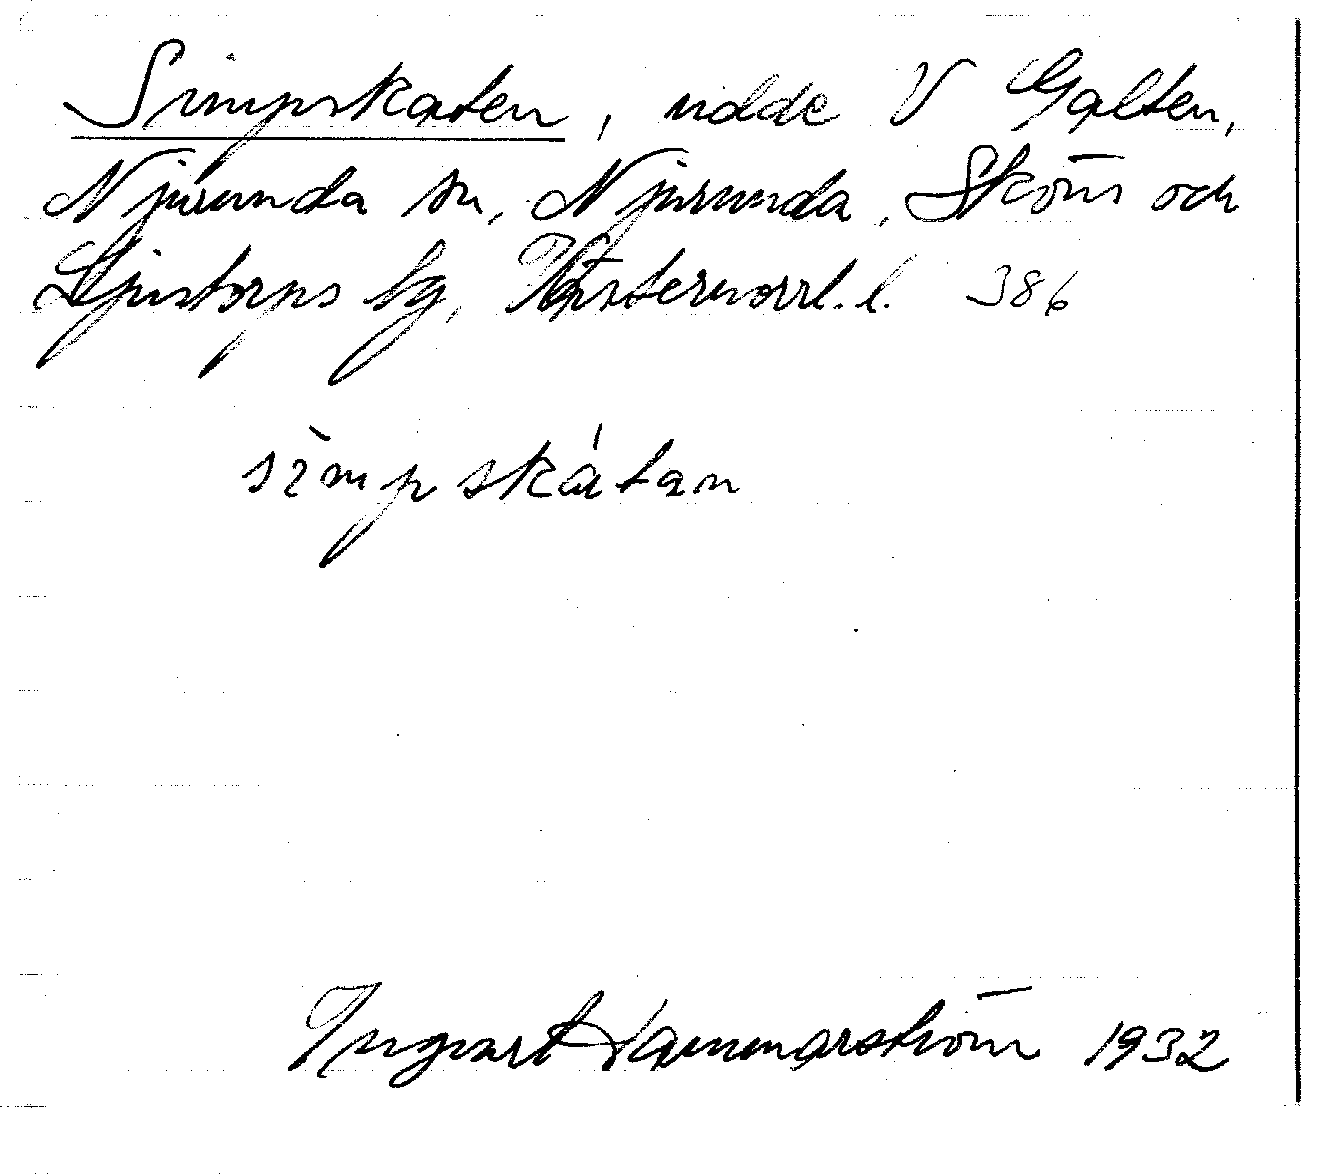 Simpskaten, udde V Galten,
Njurunda sn, Njurunda, Sköns och
Ljustorps tg, Västernorrl. l. 386
sìmpskátan
Ingvart Hammarström 1932